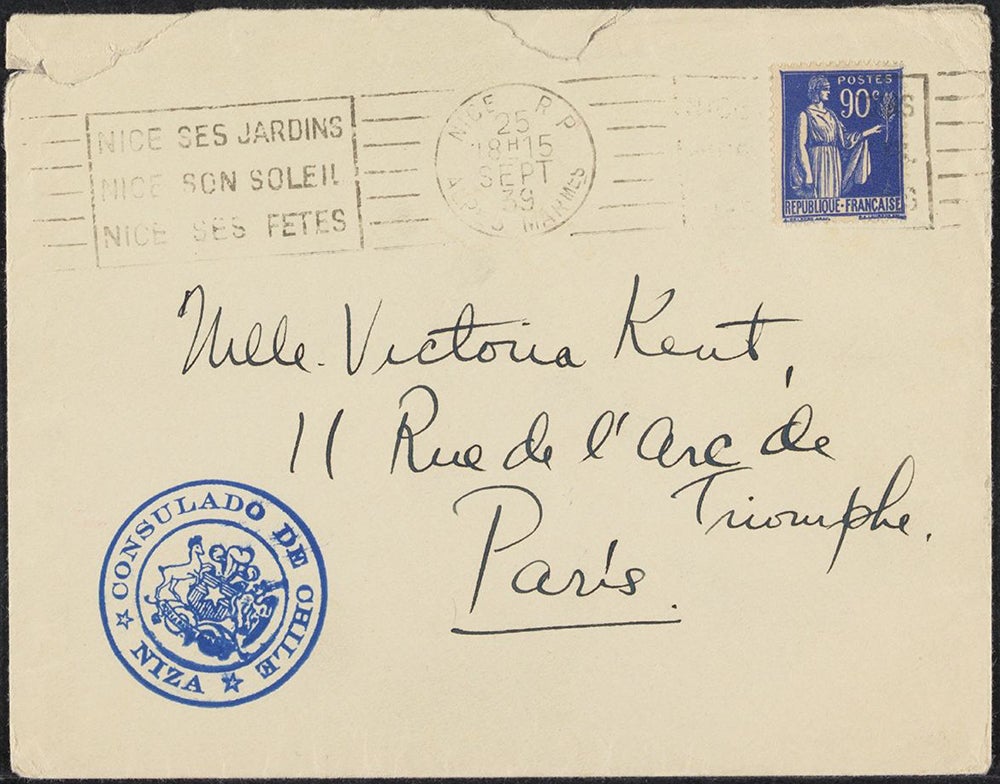 NICE SES JARDINS
NICE SON SOLEIL
NICE SES FETES
NICE R.P.
25
18H15
SEPT
39
ALPES MARITMES
POSTES
90c
REPUBLIQUE-FRANCAISE
Melle. Victoria Kent,
11 Rue de l'Arc de
Triomphe.
París.
CONSULADO DE CHILE
NIZA